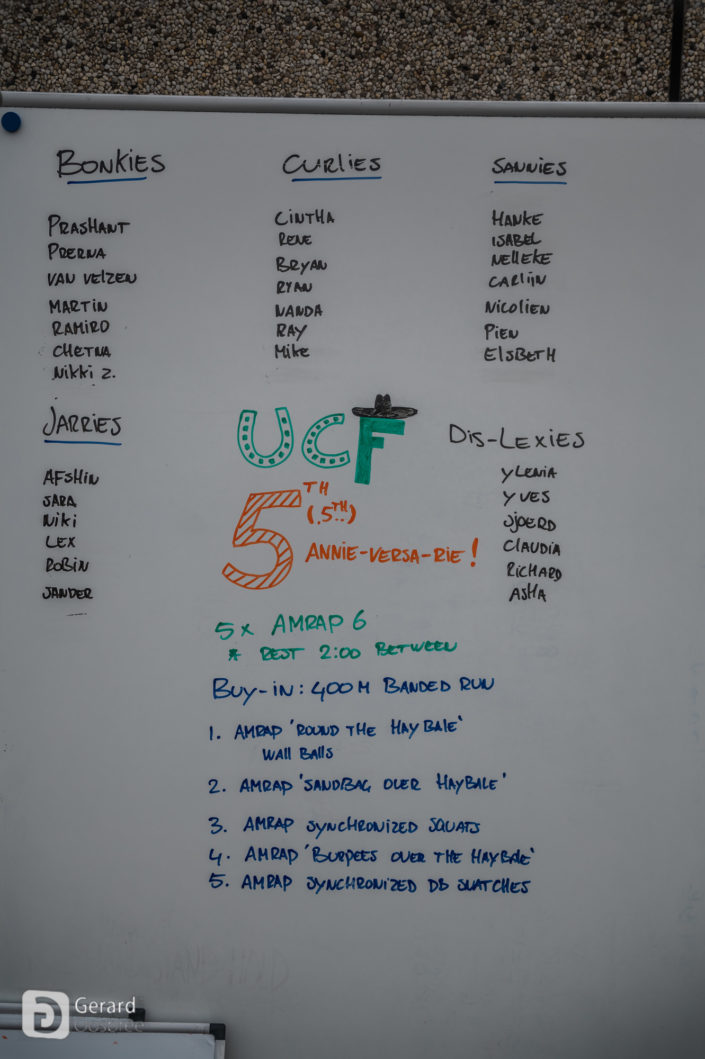 BONKIES
PRASHANT
PRERNA
VAN VELZEN
MARTIN
RAMIRO
CHETNA
NIKKI Z.
CURLIES
CINTHA
RENE
BRYAN
RYAN
NANDA
RAY
MIKE
SANNIES
HANKE
ISABEL
NELLEKE
CARLIJN
NICOLIEN
PIEN
ELSBETH
JARRIES
AFSHIN
SARA
NIKI
LEX
ROBIN
SANDER
UCF
5TH
(.5TH..)
ANNIE-VERSA-RIE!
DIS-LEXIES
YLENIA
YVES
SJOERD
CLAUDIA
RICHARD
ASHA
5X AMRAP 6
* REST 2:00 BETWEEN
BUY-IN: 400M BANDED RUN
1. AMRAP 'ROUND THE HAY BALE'
WALL BALLS
2. AMRAP 'SANDBAG OVER HAYBALE'
3. AMRAP SYNCHRONIZED SQUATS
4. AMRAP 'BURPEES OVER THE HAYBALE'
5. AMRAP SYNCHRONIZED DB SNATCHES
Gerard